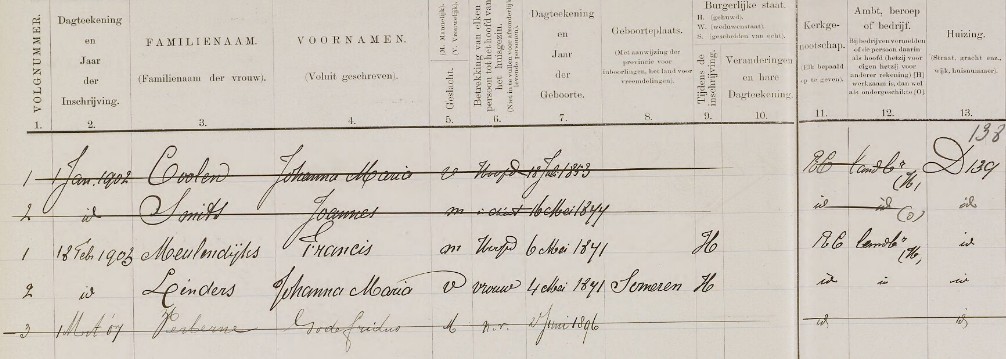 VOLGNUMMER.
Dagteekening
en
Jaar
der
Inschrijving.
FAMILIENAAM.
(Familienaam der vrouw).
VOORNAMEN.
(Voluit geschreven).
Geslacht.
(M. Mannelijk).
(V. Vrouwelijk).
Betrekking van elken
persoon tot het hoofd van
het huisgezin.
Dagteekening
en
Jaar
der
Geboorte.
Geboorteplaats.
(Met aanwijzing der
provincie voor
inboorlingen, het land voor
vreemdelingen).
Burgerlijke staat.
H. (gehuwd).
W. (weduwenstaat).
S. (gescheiden van echt).
Tijdens de
inschrijving.
Veranderingen
en hare
Dagteekening.
Kerkge-
nootschap.
Ambt, beroep
of bedrijf.
Huizing.
(Straat, gracht enz.,
wijk, huisnummer).
1. 2. 3. 4. 5. 6. 7. 8. 9. 10. 11. 12. 13.
138
1 1 Jan. 1902 Coolen Johanna Maria v Hoofd 1853 RC landbr (H) D 139
2 id Smits Joannes m 16 Mei 1877 id id (O) id
1 18 Feb 1903 Meulendijks Francis m Hoofd 6 Mei 1871 H RC landbr (H) id
2 id Linders Johanna Maria v vrouw 4 Mei 1871 Someren H id id
3 Godefridus M n.v. Juni 1896 id id